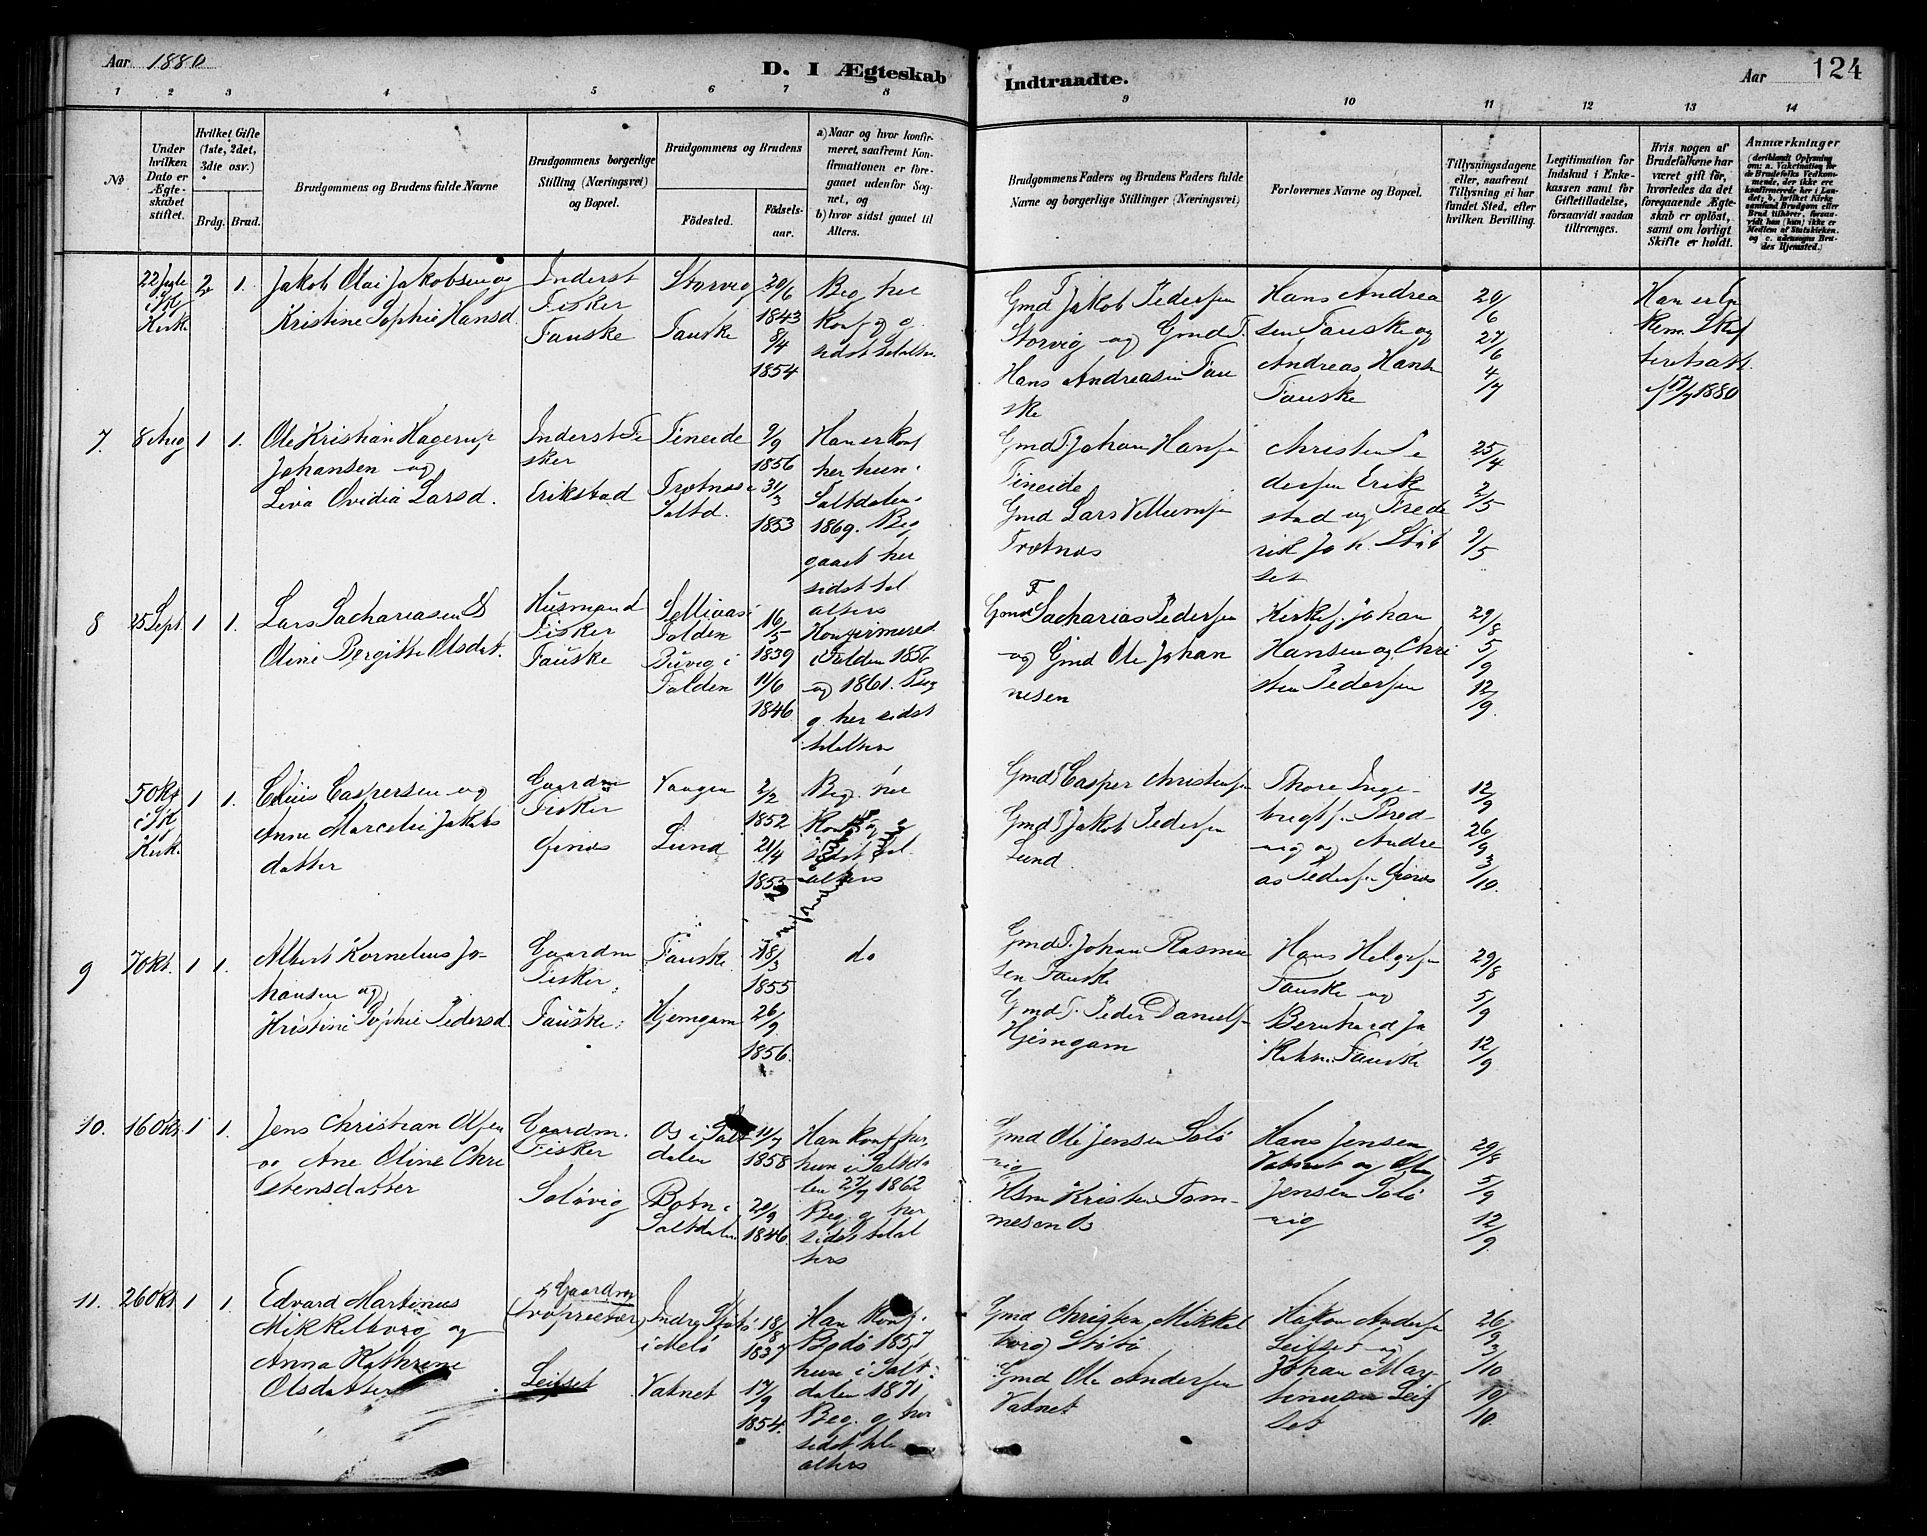 Aar 1880
D. I Ægteskab
Indtraadte.
Aar
124
1 2 3 4 5 6 7 8
9 10 11 12 13 14
No
Under hvilken Dato er Ægteskabet stiftet.
Hvilket Gifte (1ste, 2det, 3die osv.)
Brdg. Brud.
Brudgommens og Brudens fulde Navne
Brudgommens borgerlige Stilling (Næringsvei) og Bopæl.
Brudgommens og Brudens
Födested.
Födselsaar.
a) Naar og hvor konfirmeret, saafremt Konfirmationen er foregaaet udenför Sognet, og
b) hvor sidst gaaet til Alters.
Brudgommens Faders og Brudens Faders fulde Navne og borgerlige Stillinger (Næringsvei)
Forlovernes Navne og Bopæl.
Tillysningsdagene eller, saafremt Tillysning ei har fundet Sted, efter hvilken Bevilling.
Legitimation for Indskud i Enkekassen samt for Giftetilladelse, forsaavidt saadan tiltrænges.
Hvis nogen af Brudefolkene har været gift för, hvorledes da det foregaaende Ægteskab er oplöst, samt om lovligt Skifte er holdt.
Anmærkninger
22
Kirk
2 1.
Jakob Olai Jakobsen og
Kristine Sophie Hansd.
Inderst
Fisker
Fauske
Storvig
Fauske
20/6
1843
8/4
1854
Beg her
Konf og
sidst til alter.
Gmd F Jakob Pedersen
Storvig og Gmd F.
Hans Andreasen Fau
ske
Hans Andrea
sen Fauske og
Andreas Hans
Fauske
20/6
27/6
4/7
Han er En
kem. Skif
17/7 1880
7. 8 Aug 1 1.
Ole Kristian Hagerup
Johansen og
Liva Ovidia Larsd.
Inderst Fi
sker
Erikstad
Fineide
Trotnes i
Saltd.
9/9
1856
31/3
1853
Han er Konf
her hun
Saltdalen
1869. Beg
gaaet her
sidst til
alters
Gmd F. Johan Hansen
Fineide
Gmd Lars Villumsen
Trotnes
Christen Pe
dersen Erik
stad og Frede
rik Jo K. Stöt
set
25/4
2/5
9/5
8 25 Sept 1 1.
Lars Sachariasen &
Oline Bergitte Olsdat.
Husmand
Fisker
Fauske
Folden
Folden
16/5
1839
11/6
1846
Konfirmered
i Folden 1856
og 1861. Beg
g. her sidst
til alters
Gmd F Sacharias Pedersen
og Gmd Ole Johan
nesen
Kirkes. Johan
Hansen og Chri
sten Pedersen
29/8
5/9
12/9
5 Okt
Kirk.
1 1.
Caspersen og
Anne Marcelie Jakobs
datter
Gaardm
Fisker
Vaagen
Lund
2/2
1852
21/4
1853
Beg. her
Konf og
sidst til
alters
Gmd F Casper Christensen
Gmd F Jakob Pedersen
Lund.
Thore Inge
brigts. Bred
vig og Andre
as Pedersen
12/9
26/9
3/10
9 7 Okt. 1 1.
Albert Kornelius Jo-
hansen og
Kristine Sophie Pedersd.
Gaardm
Fisker
Fauske
Fauske
Hjemgam
18/3
1855
26/9
1856.
do
Gmd F. Johan Rasmu
sen Fauske
Gmd F. Peder Danielsen
Hjemgam
Hans Helgesen
Fauske og
Bernhard Ja
Fauske
29/8
5/9
12/9
10. 16 Okt 1 1.
Jens Christian Olsen
og Ane Oline Chri
stensdatter
Gaardm.
Fisker
Solövig
Os i Salt
dalen
Botn i
Saltdalen
11/7
1858
20/9
1846.
Han Konf her,
hun i Saltda
len 27/9 1862
Beg. g her
sidst til al
ters
Gmd Ole Jensen Solö
vig
Hsm Kristen Tom
mesen Os
Hans Jensen
Vatnet og Ole
Jensen Solö
vig
29/8
5/9
12/9
11. 26 Okt 1 1.
Edvard Martinus
Mikkelborg og
Anna Kathrine
Olsdatter
Gaardm
(Proprietær)
Leifset
i Melö
Vatnet
18/8
1837
17/9
1854.
Han Konf.
Bodö 1857,
hun i Salt
dalen 1871
Beg. g her
sidst til
alters
Gmd Christen Mikkel
borg Stötö
Gmd Ole Andersen
Vatnet
Hakon Andersen
Leifset og
Johan Mar
tinusen Leif
set
26/9
3/10
10/10.